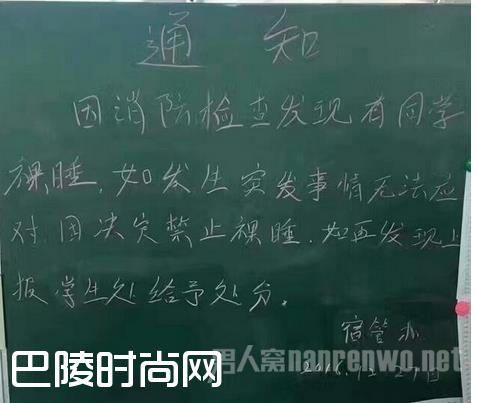 通知
因消防检查发现有同学
裸睡，如发生突发事情无法应
对因决定禁止裸睡．如再发现上
报学生处给予处分。
宿管办
2016.12.27日
巴陵时尚网
男人窝nanrenwo.net